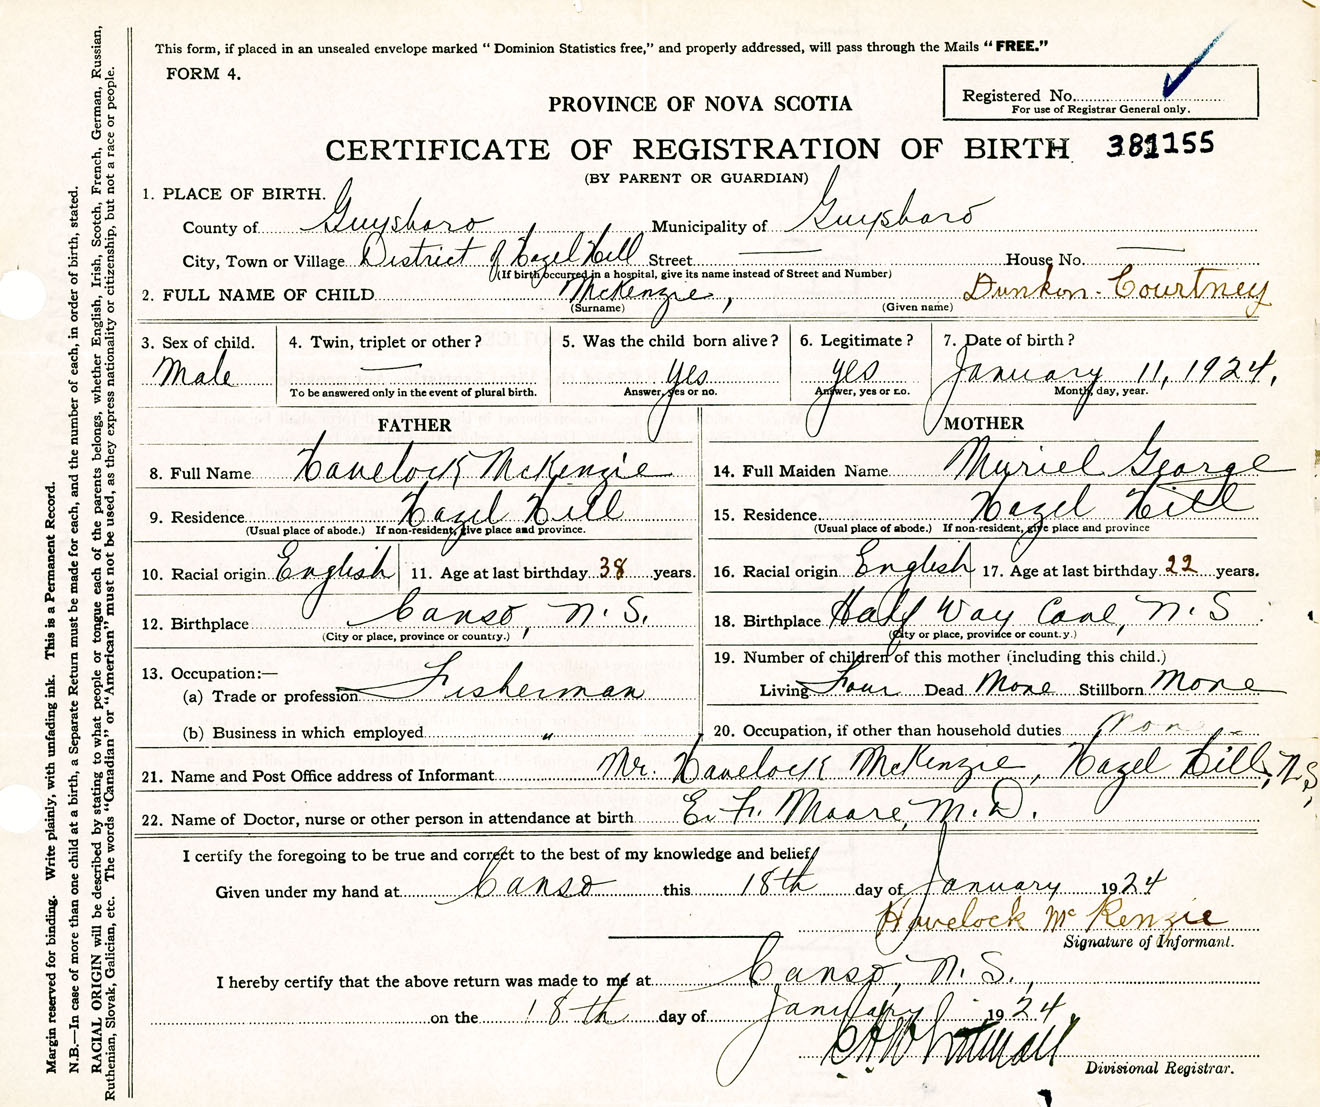 This form, if placed in an unsealed envelope marked "Dominion Statistics free," and properly addressed, will pass through the Mails "FREE."
FORM 4.
Registered No.
For use of Registrar General only.
PROVINCE OF NOVA SCOTIA
CERTIFICATE OF REGISTRATION OF BIRTH 381155
(BY PARENT OR GUARDIAN)
1. PLACE OF BIRTH.
County of Guysboro Municipality of Guysboro
City, Town or Village District of Hazel Hill Street — House No. —
(If birth occurred in a hospital, give its name instead of Street and Number)
2. FULL NAME OF CHILD McKenzie, Dunkon-Courtney
(Surname) (Given name)
3. Sex of child. 4. Twin, triplet or other? 5. Was the child born alive? 6. Legitimate? 7. Date of birth?
Male — yes yes January 11, 1924.
To be answered only in the event of plural birth. Answer, yes or no. Answer, yes or no. Month, day, year.
FATHER MOTHER
8. Full Name Havelock McKenzie 14. Full Maiden Name Muriel George
9. Residence Hazel Hill 15. Residence Hazel Hill
(Usual place of abode.) If non-resident, give place and province. (Usual place of abode.) If non-resident, give place and province
10. Racial origin English 11. Age at last birthday 38 years. 16. Racial origin English 17. Age at last birthday 22 years.
12. Birthplace Canso, N.S. 18. Birthplace Half Way Cove, N.S.
(City or place, province or country.) (City or place, province or country.)
13. Occupation:— 19. Number of children of this mother (including this child.)
(a) Trade or profession Fisherman Living Four Dead None Stillborn None
(b) Business in which employed " 20. Occupation, if other than household duties None
21. Name and Post Office address of Informant Mr. Havelock McKenzie, Hazel Hill, N.S,
22. Name of Doctor, nurse or other person in attendance at birth E. F. Moore, M.D.
I certify the foregoing to be true and correct to the best of my knowledge and belief
Given under my hand at Canso this 18th day of January 1924
Havelock McKenzie
Signature of Informant.
I hereby certify that the above return was made to me at Canso, N.S.,
on the 18th day of January 1924.
Divisional Registrar.
Margin reserved for binding. Write plainly, with unfading ink. This is a Permanent Record.
N.B.—In case of more than one child at a birth, a Separate Return must be made for each, and the number of each, in order of birth, stated.
RACIAL ORIGIN will be described by stating to what people or tongue each of the parents belongs, whether English, Irish, Scotch, French, German, Russian,
Ruthenian, Slovak, Galician, etc. The words "Canadian" or "American" must not be used, as they express nationality or citizenship, but not a race or people.